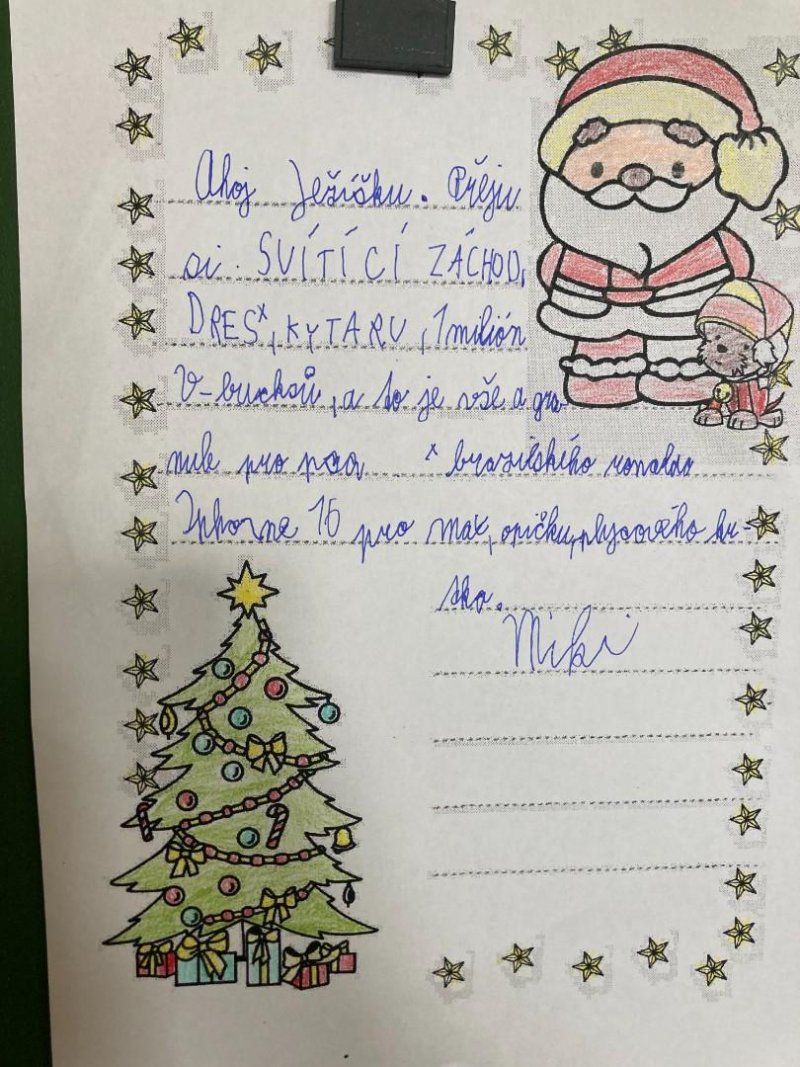 Ahoj Ježíšku. Přěju
si SVÍTÍCÍ ZÁCHOD,
DRESˣ, KYTARU, 1 milión
V-buchsů, a to je vše a gra
nule pro psa. ˣ brazilského ronaldo
16 pro max, opičku, plyšového ku-
ska.
Miki